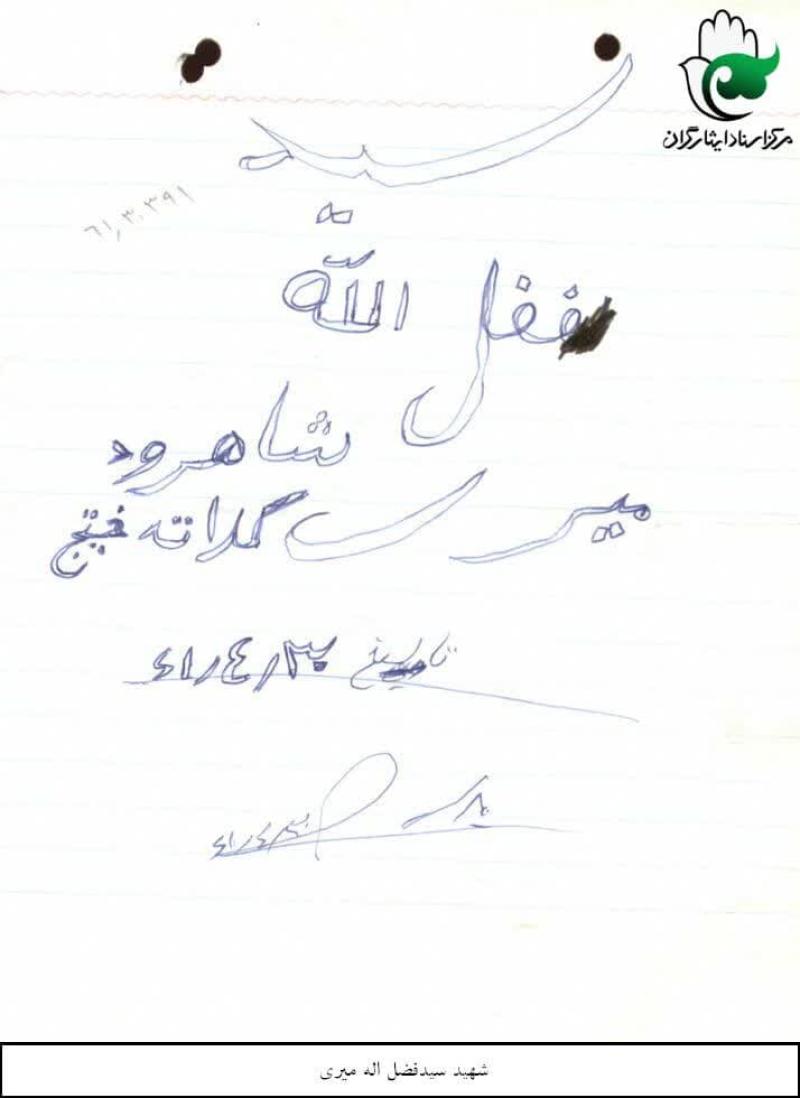 مرکز اسناد ایثارگران
سید
فضل الله
شاهرود
میری کلاته خیج
تاریخ ۶۱/۴/۳۰
۶۱/۴/۳۰
شهید سیدفضل اله میری